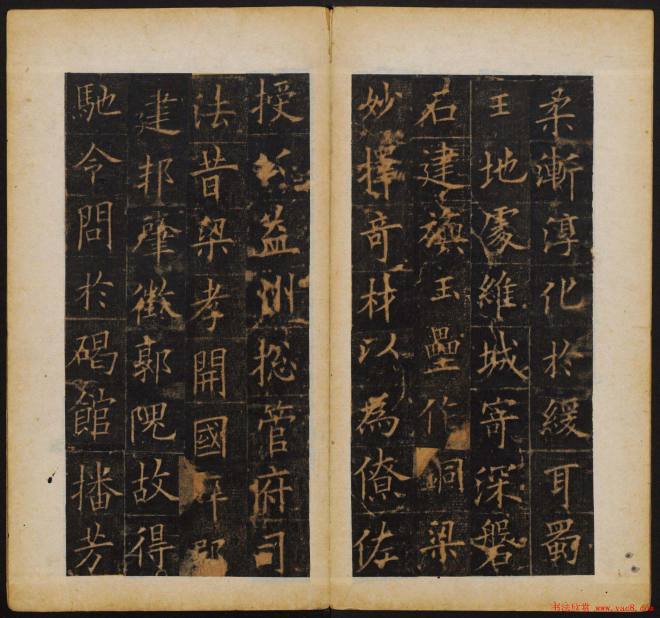 柔漸淳化於緩耳蜀
王地處維城寄深磐
石建旟玉壘作銅梁
妙擇奇材以為僚佐
授公益州捴管府司
法昔梁孝開國
建邦肇徵郭隗故得
馳令問於碣館播芳
书法欣赏 www.yac8.com